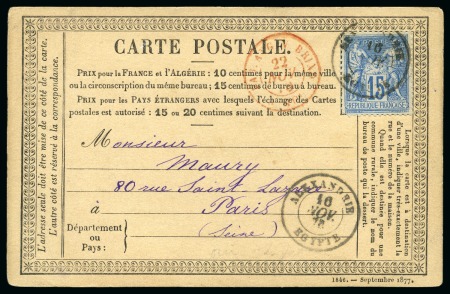 CARTE POSTALE.
PRIX pour la FRANCE et l'ALGÉRIE: 10 centimes pour la même ville
ou la circonscription du même bureau; 15 centimes de bureau à bureau.
PRIX pour les PAYS ÉTRANGERS avec lesquels l'échange des Cartes
postales est autorisé: 15 ou 20 centimes suivant la destination.
15
RÉPUBLIQUE FRANÇAISE
22
Monsieur
Maury
80 rue Saint Lazare
à Paris
(Seine)
Département
ou Pays:
ALEXANDRIE
16
NOV.
EGYPTE
16
Ce côté est exclusivement réservé à l'adresse.
L'autre côté est réservé à la correspondance.
Lorsque la carte est à destination
d'une ville, indiquer très-exactement
la rue et le numéro de la maison.
Quand elle est destinée pour une
commune rurale, indiquer le nom du
bureau qui la dessert.
1846. — Septembre 1877.